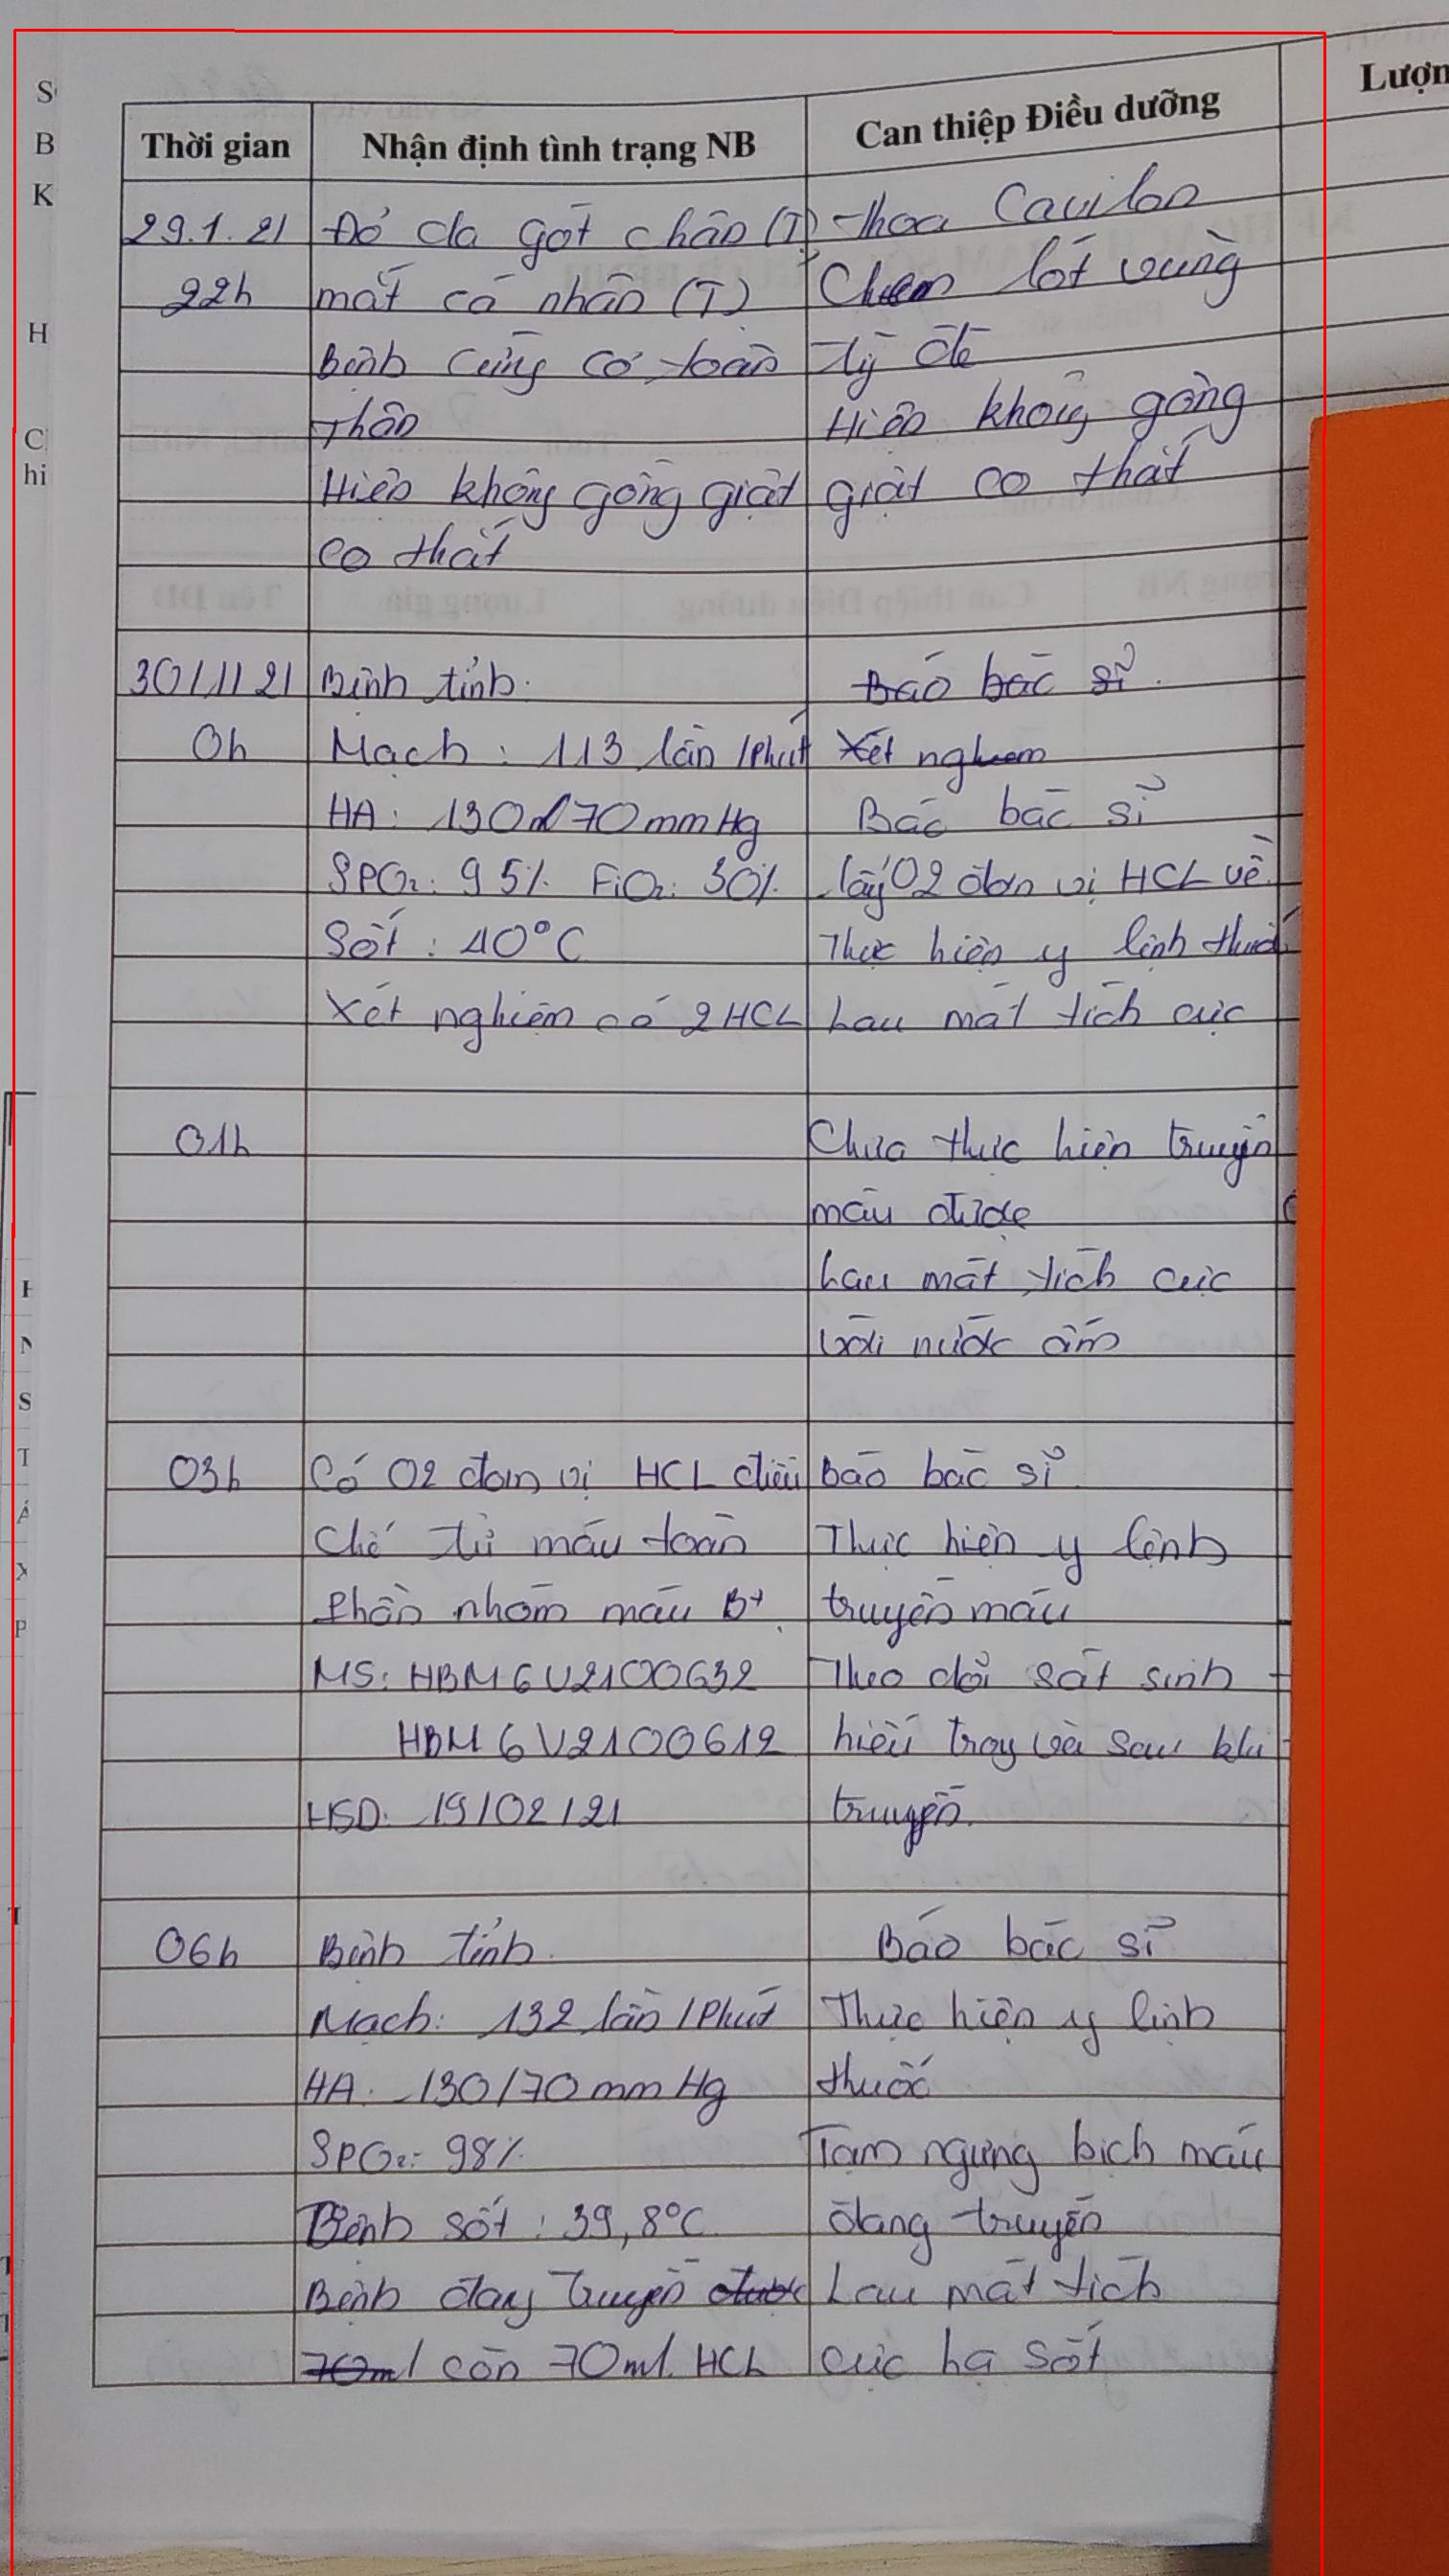 Thời gian
Nhận định tình trạng NB
Can thiệp Điều dưỡng
Lượn
29.1.21
Đỏ da gót chân (T)
thoa Cavilon
22h
mắt cá nhân (T)
Chêm lót vùng
Bệnh cứng cơ toàn
tỳ đè
thân
Hiện không gồng
Hiện không gồng giật
giật co thắt
co thắt
30/1/21
Bệnh tỉnh.
Báo bác sĩ.
0h
Mạch: 113 lần/phút
Xét nghiệm
HA: 130/70mmHg
Báo bác sĩ
SPO2: 95% FiO2: 30%.
lấy 02 đơn vị HCL về.
Sốt: 40°C
Thực hiện y lệnh thuốc
Xét nghiệm có 2 HCL
Lau mát tích cực
01h
Chưa thực hiện truyền
máu được
Lau mát tích cực
với nước ấm
03h
Có 02 đơn vị HCL điều
báo bác sĩ
chế từ máu toàn
Thực hiện y lệnh
phần nhóm máu B+.
truyền máu
MS: HBM6V2100632
Theo dõi sát sinh
HBM6V2100612
hiệu trong và sau khi
HSD: 19/02/21
truyền.
06h
Bệnh tỉnh.
Báo bác sĩ
Mạch: 132 lần/Phút
Thực hiện y lệnh
HA: 130/70mmHg
thuốc
SPO2: 98%.
Tạm ngưng bịch máu
Bệnh sốt: 39,8°C.
đang truyền
Bệnh đang truyền được
Lau mát tích
70ml còn 70ml HCL
cực hạ sốt